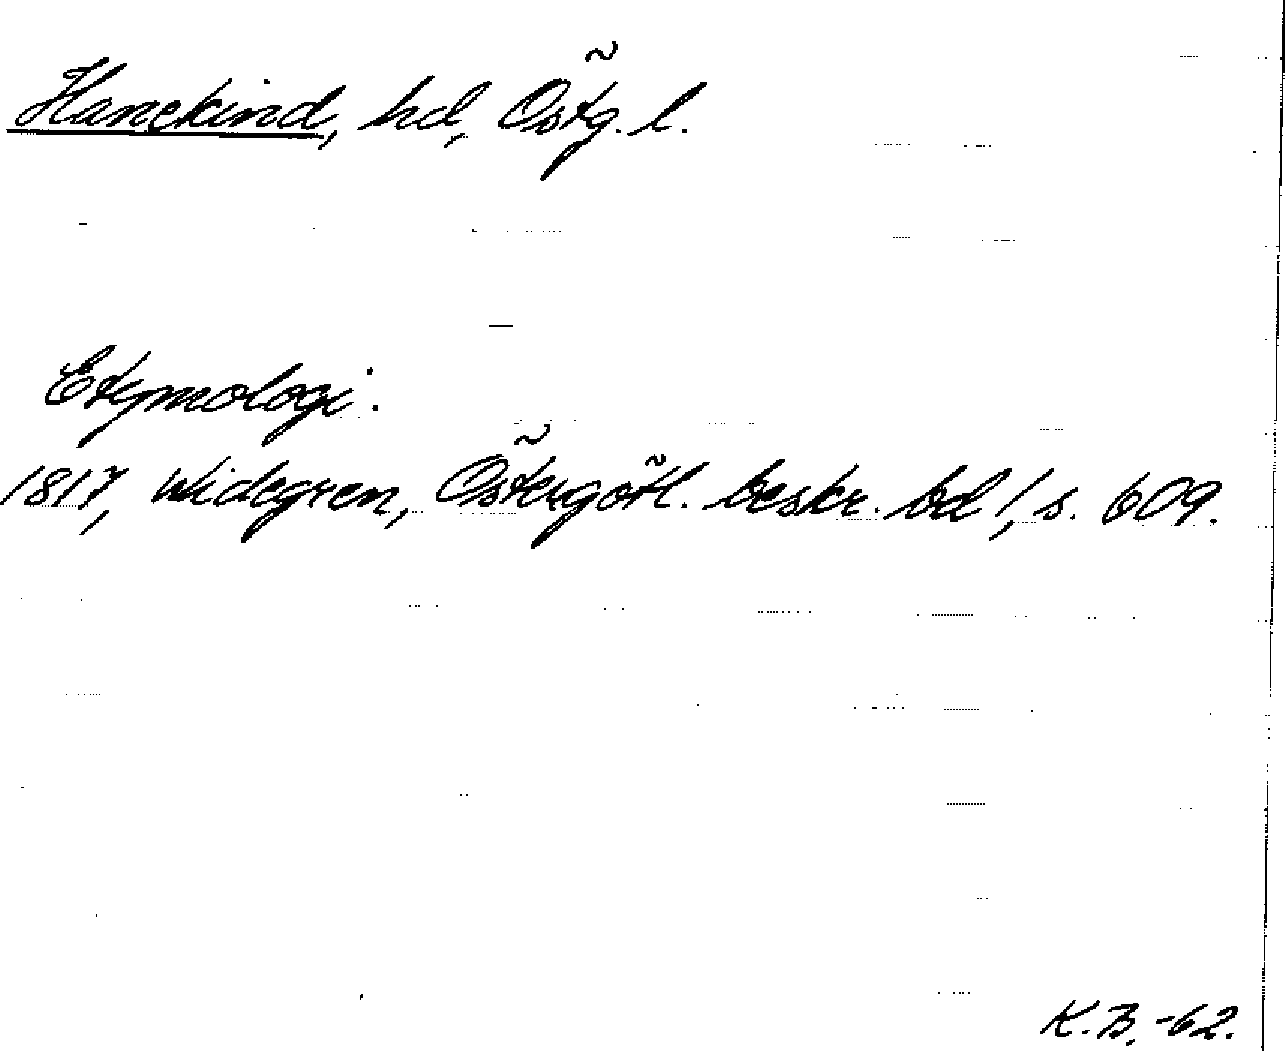 Hanekind, hd, Östg. l.
Etymologi:
1817, Widegren, Östergötl. beskr. bd 1, s. 609.
K.B. -62.